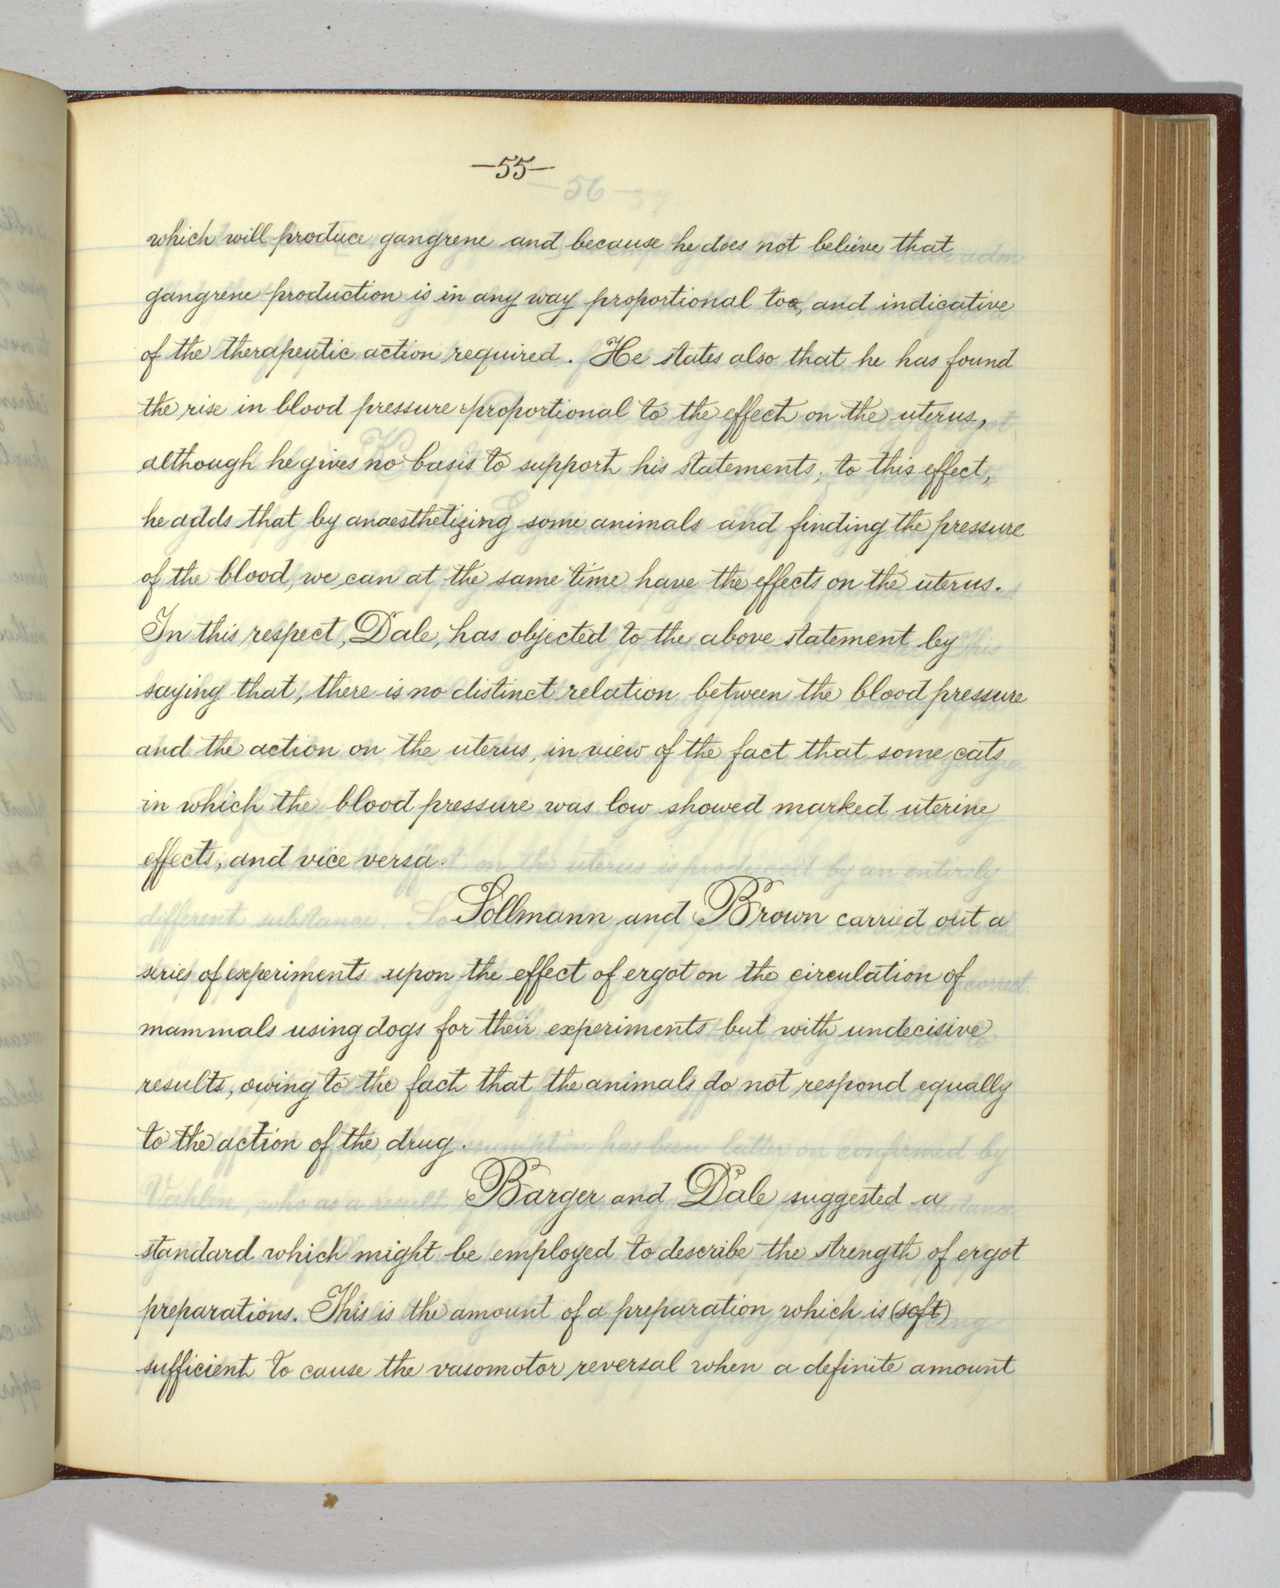 —55—
which will produce gangrene and because he does not believe that
gangrene production is in any way proportional too, and indicative
of the therapeutic action required. He states also that he has found
the rise in blood pressure proportional to the effect on the uterus,
although he gives no basis to support his statements; to this effect,
he adds that by anaesthetizing some animals and finding the pressure
of the blood, we can at the same time have the effects on the uterus.
In this respect, Dale, has objected to the above statement by
saying that, there is no distinct relation between the blood pressure
and the action on the uterus, in view of the fact that some cats
in which the blood pressure was low showed marked uterine
effects, and vice versa.
Sollmann and Brown carried out a
series of experiments upon the effect of ergot on the circulation of
mammals using dogs for their experiments but with undecisive
results, owing to the fact that the animals do not respond equally
to the action of the drug.
Barger and Dale suggested a
standard which might be employed to describe the strength of ergot
preparations. This is the amount of a preparation which is (soft)
sufficient to cause the vasomotor reversal when a definite amount